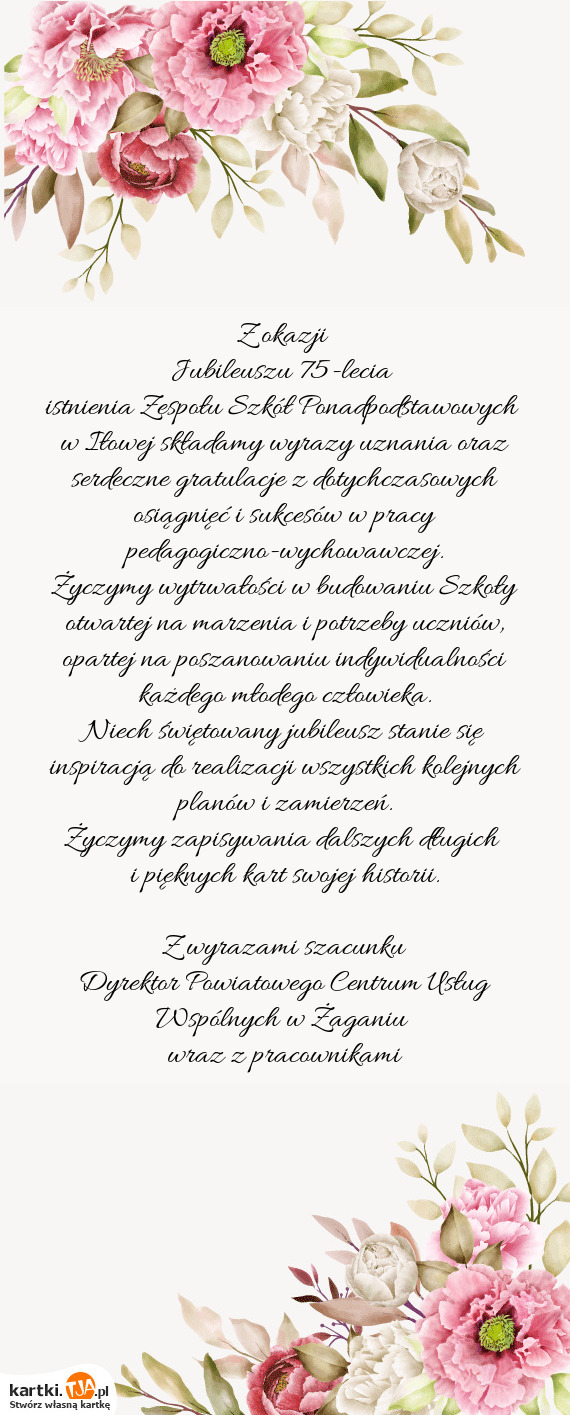 Z okazji
Jubileuszu 75-lecia
istnienia Zespołu Szkół Ponadpodstawowych
w Iłowej składamy wyrazy uznania oraz
serdeczne gratulacje z dotychczasowych
osiągnięć i sukcesów w pracy
pedagogiczno-wychowawczej.
Życzymy wytrwałości w budowaniu Szkoły
otwartej na marzenia i potrzeby uczniów,
opartej na poszanowaniu indywidualności
każdego młodego człowieka.
Niech świętowany jubileusz stanie się
inspiracją do realizacji wszystkich kolejnych
planów i zamierzeń.
Życzymy zapisywania dalszych długich
i pięknych kart swojej historii.
Z wyrazami szacunku
Dyrektor Powiatowego Centrum Usług
Wspólnych w Żaganiu
wraz z pracownikami
kartki.TJA.pl
Stwórz własną kartkę